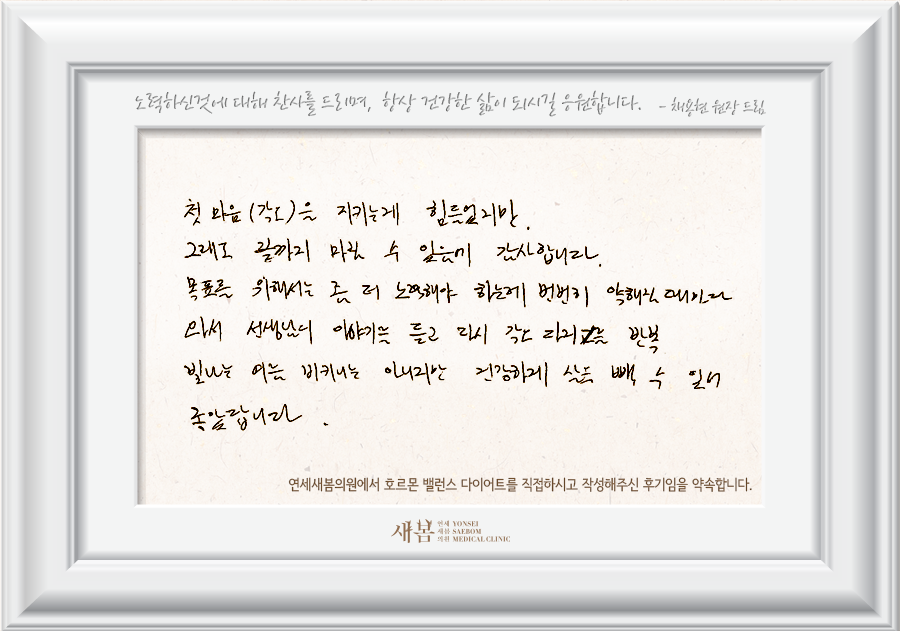 노력하신것에 대해 찬사를 드리며, 항상 건강한 삶이 되시길 응원합니다. - 채용현 원장 드림
첫 마음(각오)을 지키는게 힘들었지만.
그래도 끝까지 마칠 수 있음에 감사합니다.
목표를 위해서는 좀 더 노력해야 하는데 번번히 약해질때마다
의사 선생님의 이야기를 듣고 다시 각오 다지기를 반복
빛나는 여름 비키니는 아니지만 건강하게 살을 뺄 수 있어
좋았답니다.
연세새봄의원에서 호르몬 밸런스 다이어트를 직접하시고 작성해주신 후기임을 약속합니다.
새봄 연세 YONSEI
새봄 SAEBOM
의원 MEDICAL CLINIC